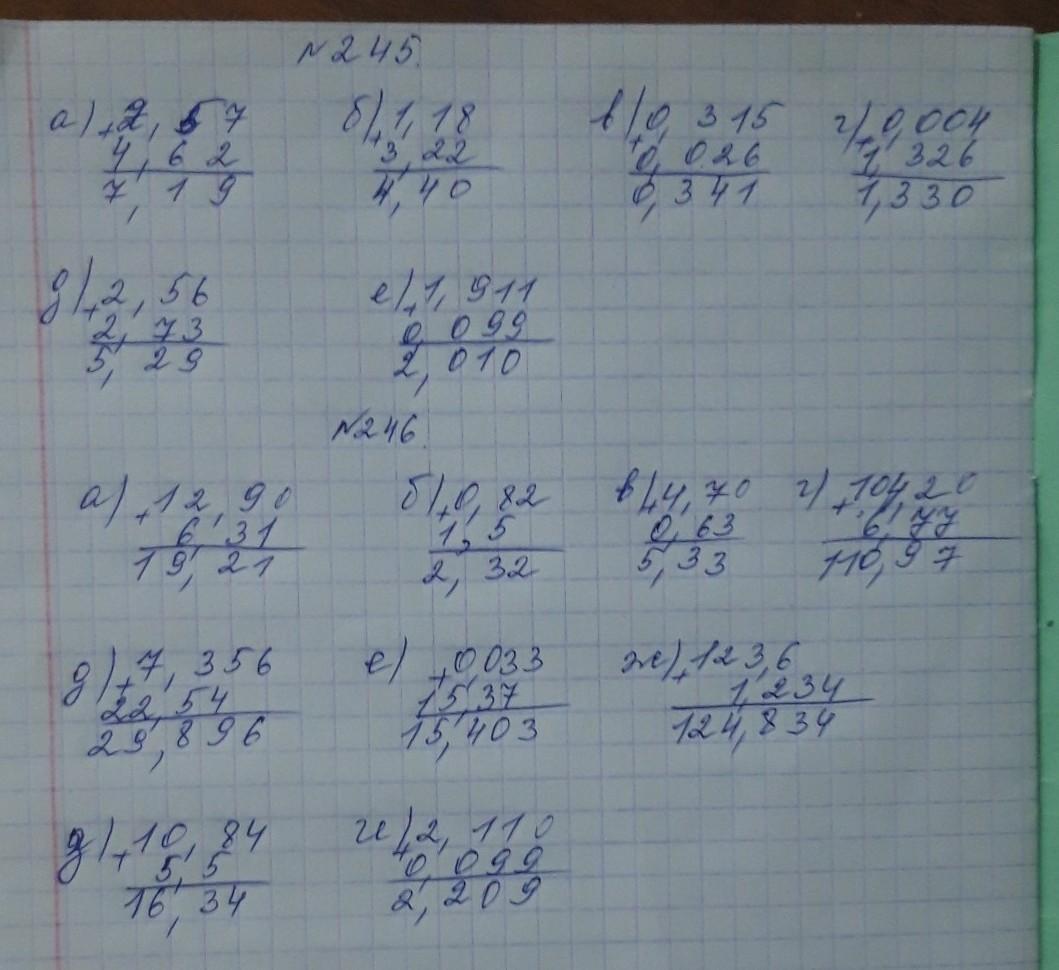 №245.
а) +2,57 б) +1,18 в) +0,315 г) +0,004
4,62 3,22 0,026 1,326
7,19 4,40 0,341 1,330
д) +2,56 е) +1,911
2,73 0,099
5,29 2,010
№246.
а) +12,90 б) +0,82 в) +4,70 г) +104,20
6,31 1,5 0,63 6,77
19,21 2,32 5,33 110,97
д) +7,356 е) +0,033 ж) +123,6
22,54 15,37 1,234
29,896 15,403 124,834
д) +10,84 и) +2,110
5,5 0,099
16,34 2,209